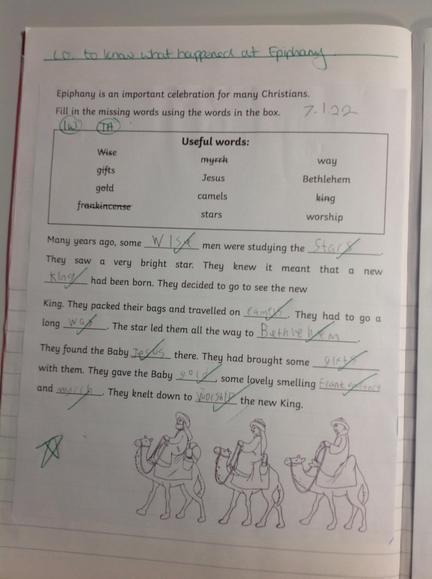 L.O. to know what happened at Epiphany.
Epiphany is an important celebration for many Christians.
Fill in the missing words using the words in the box. 7.1.22
IW TA
Useful words:
Wise myrrh way
gifts Jesus Bethlehem
gold camels king
frankincense stars worship
Many years ago, some Wise men were studying the stars.
They saw a very bright star. They knew it meant that a new
King had been born. They decided to go to see the new
King. They packed their bags and travelled on camels. They had to go a
long way. The star led them all the way to Bethlehem.
They found the Baby Jesus there. They had brought some gifts
with them. They gave the Baby gold, some lovely smelling
and. They knelt down to worship the new King.